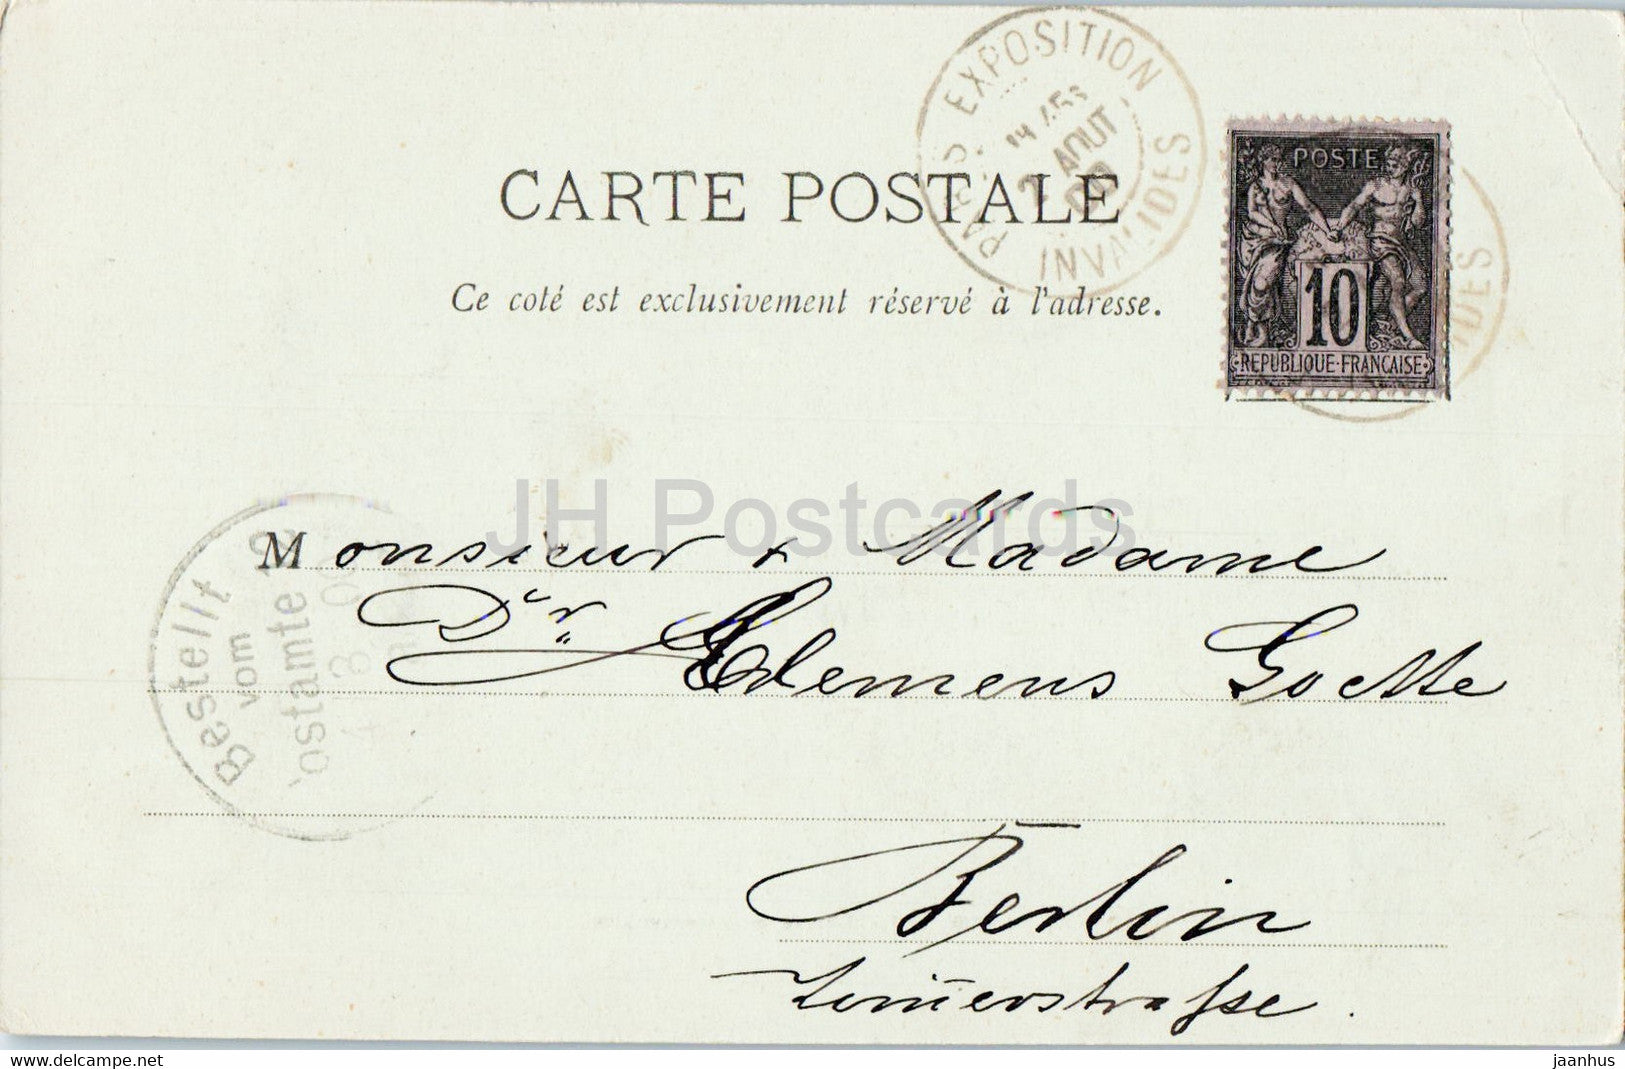 PARIS EXPOSITION
AOUT
INVALIDES
POSTE
10
REPUBLIQUE FRANÇAISE
CARTE POSTALE
Ce coté est exclusivement réservé à l'adresse.
JH Postcards
Monsieur + Madame
Dr. Clemens Goette
Bestellt
vom
Postamte
Berlin
www.delcampe.net
jaanhus